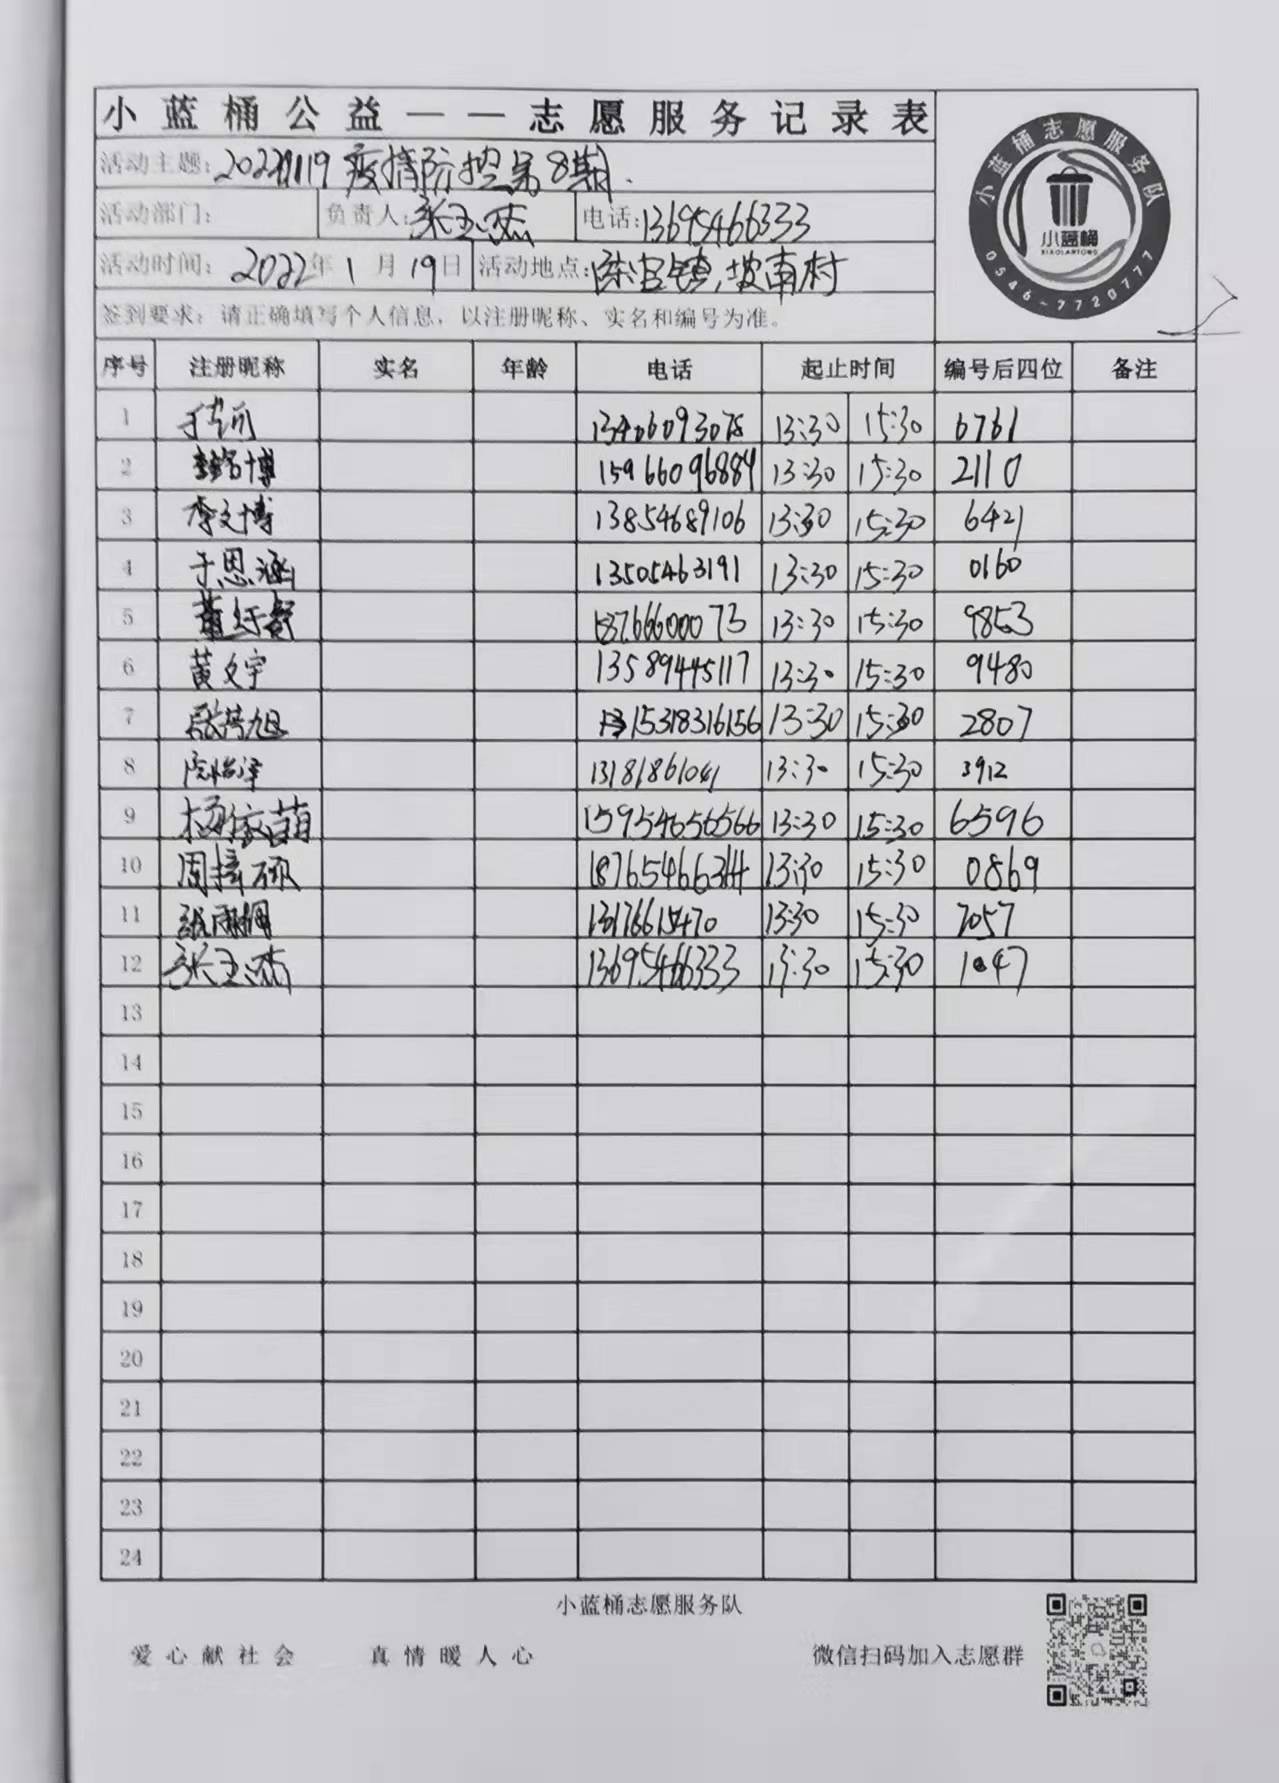 小蓝桶公益——志愿服务记录表
活动主题: 疫情防控第8期.
活动部门: 负责人: 张玉杰 电话:13695466333
活动时间: 2022年1月19日 活动地点: 陈官镇,坡南村
签到要求：请正确填写个人信息，以注册昵称、实名和编号为准。
小蓝桶志愿服务队
小蓝桶
XIAOLANTONG
0546-7720777
序号 注册昵称 实名 年龄 电话 起止时间 编号后四位 备注
1 13406093078 13:30 15:30 6761
2 15966096884 13:30 15:30 2110
3 李文博 13854689106 13:30 15:30 6421
4 于恩涵 13505463191 13:30 15:30 0160
5 18766600073 13:30 15:30 9853
6 黄文宇 13589445117 13:30 15:30 9480
7 15318316156 13:30 15:30 2807
8 13181861041 13:30 15:30 3912
9 15954656566 13:30 15:30 6596
10 13:30 15:30 0869
11 13176615470 13:30 15:30 7057
12 张玉杰 13695466333 13:30 15:30 1047
13
14
15
16
17
18
19
20
21
22
23
24
小蓝桶志愿服务队
爱心献社会 真情暖人心 微信扫码加入志愿群